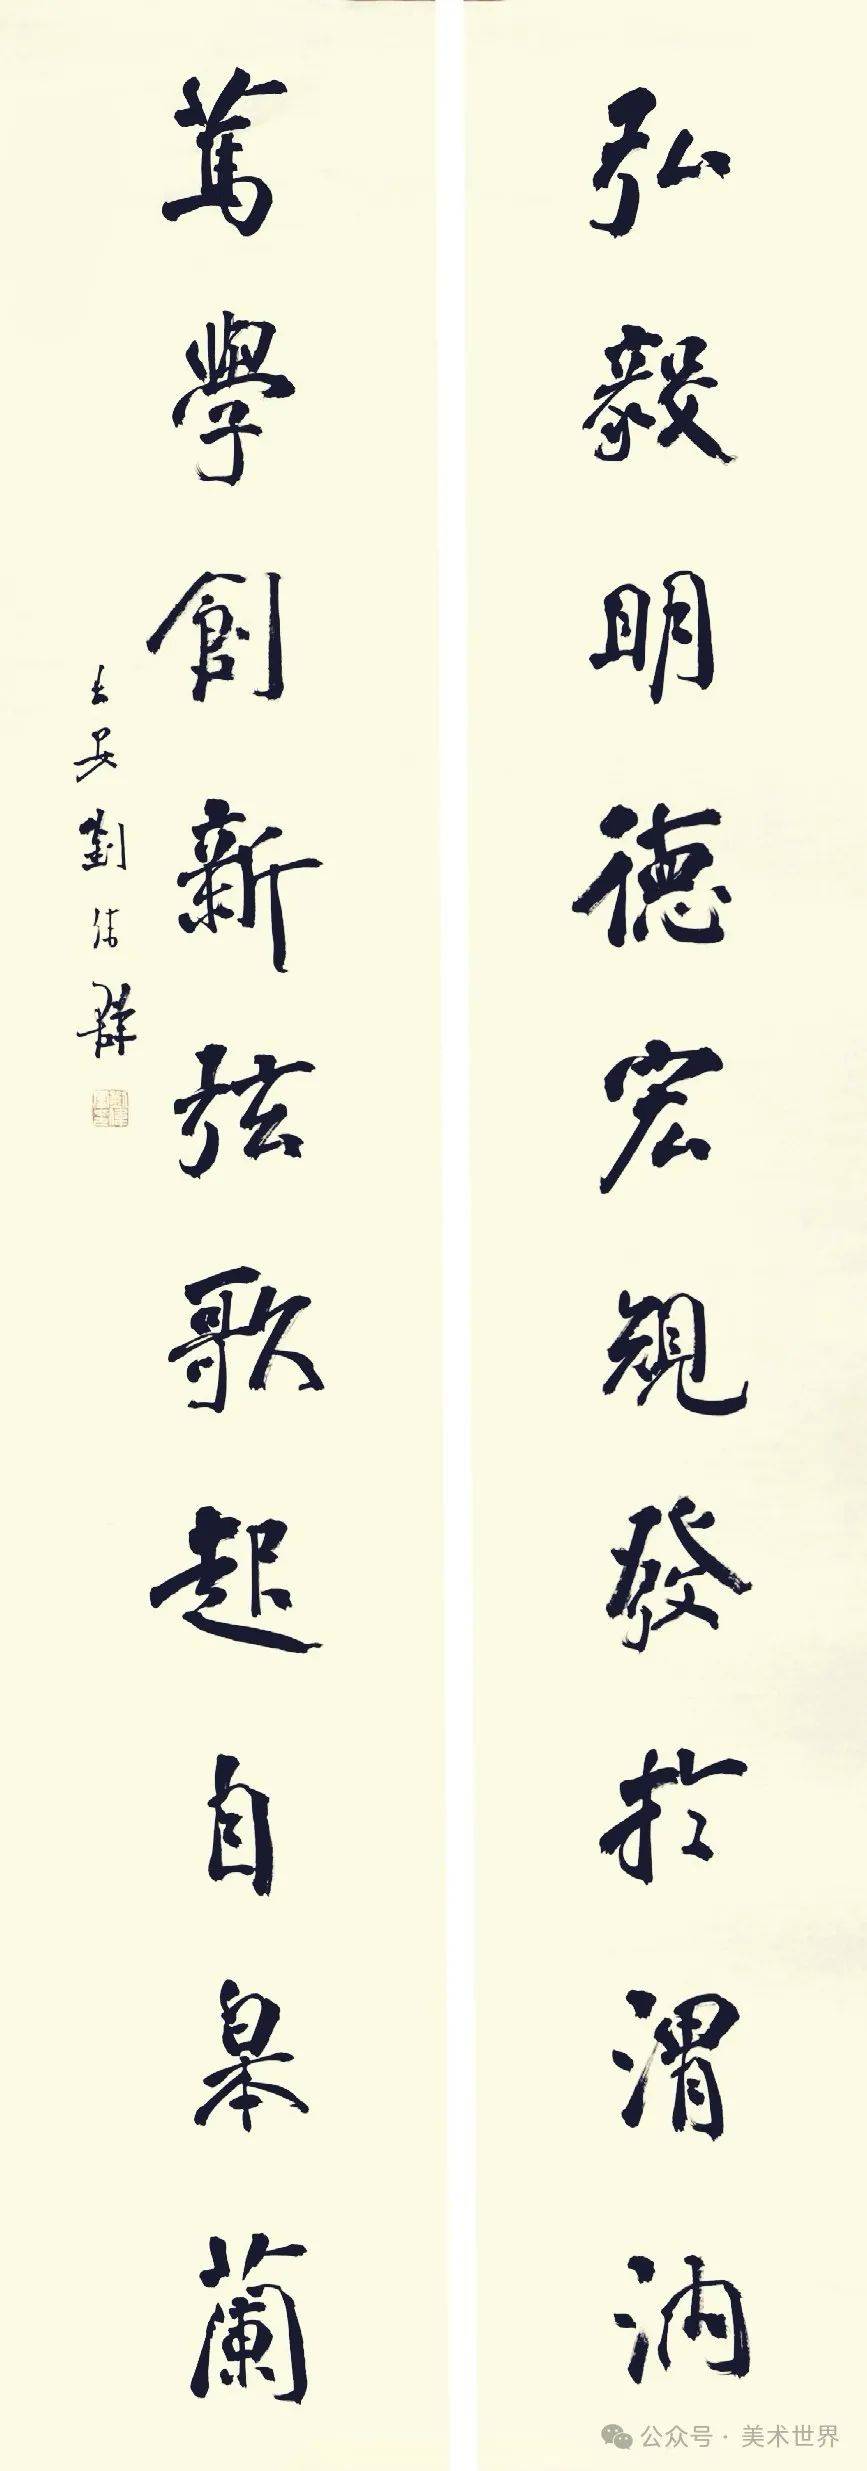 弘毅明德宏規發於渭汭
篤學創新弦歌起自皋蘭
長安劉偉群
公众号·美术世界